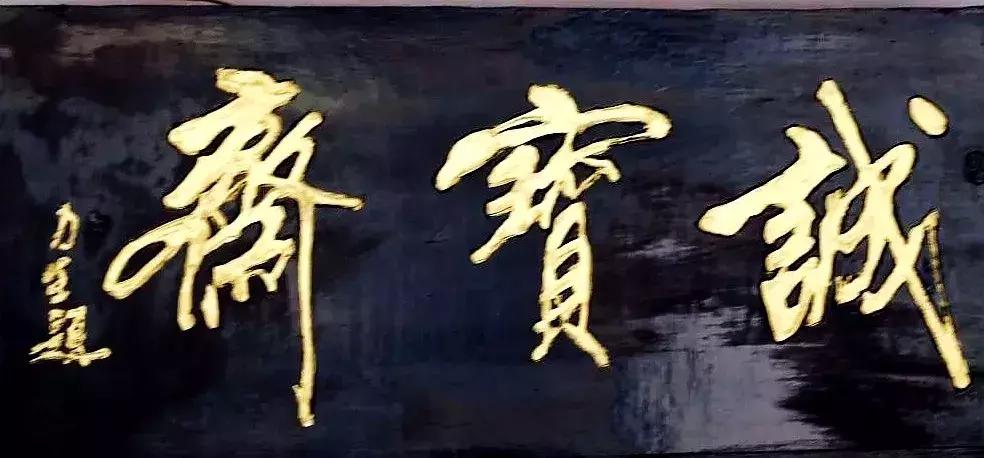 誠寶齋
力生題